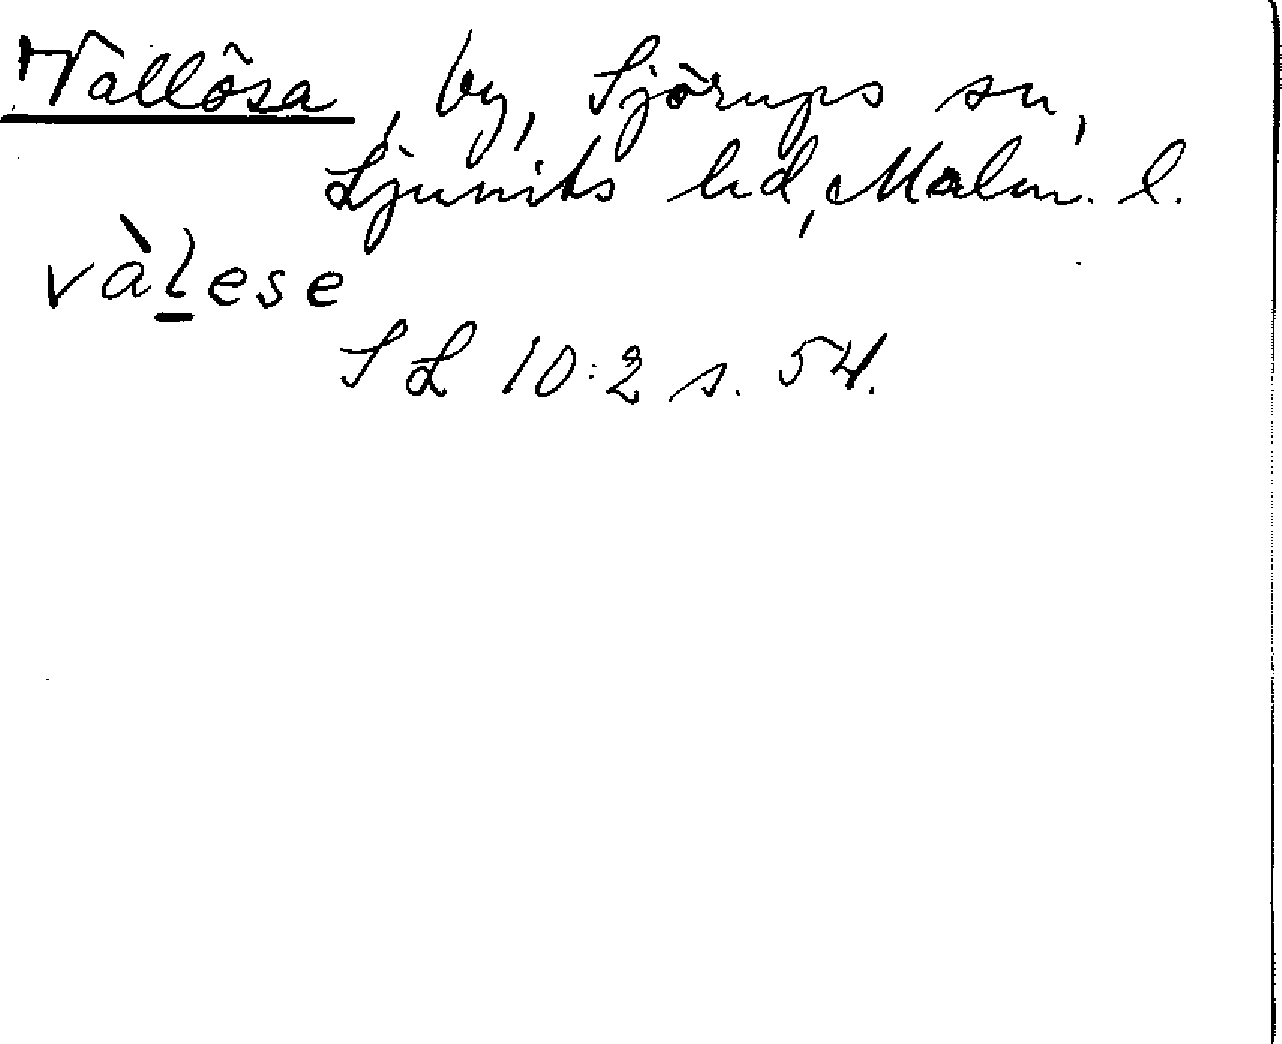 Vallösa, by, Sjörups sn,
Ljunits hd, Malm. l.
vàl̲ese
SL 10:2 s. 54.